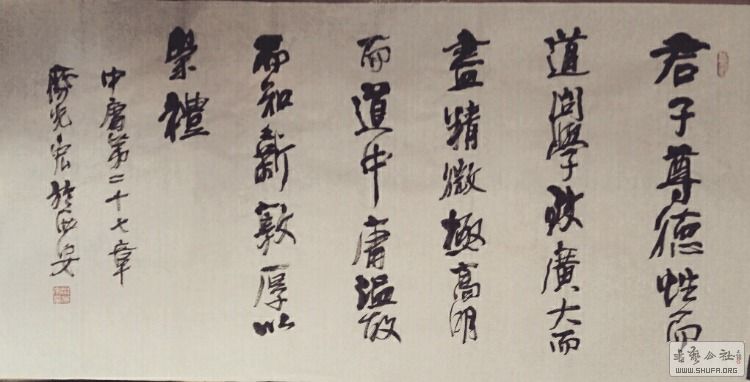 君子尊德性而
道問學致廣大而
盡精微極高明
而道中庸溫故
而知新敦厚以
崇禮
中庸第二十七章
於西安
書法公社
WWW.SHUFA.ORG